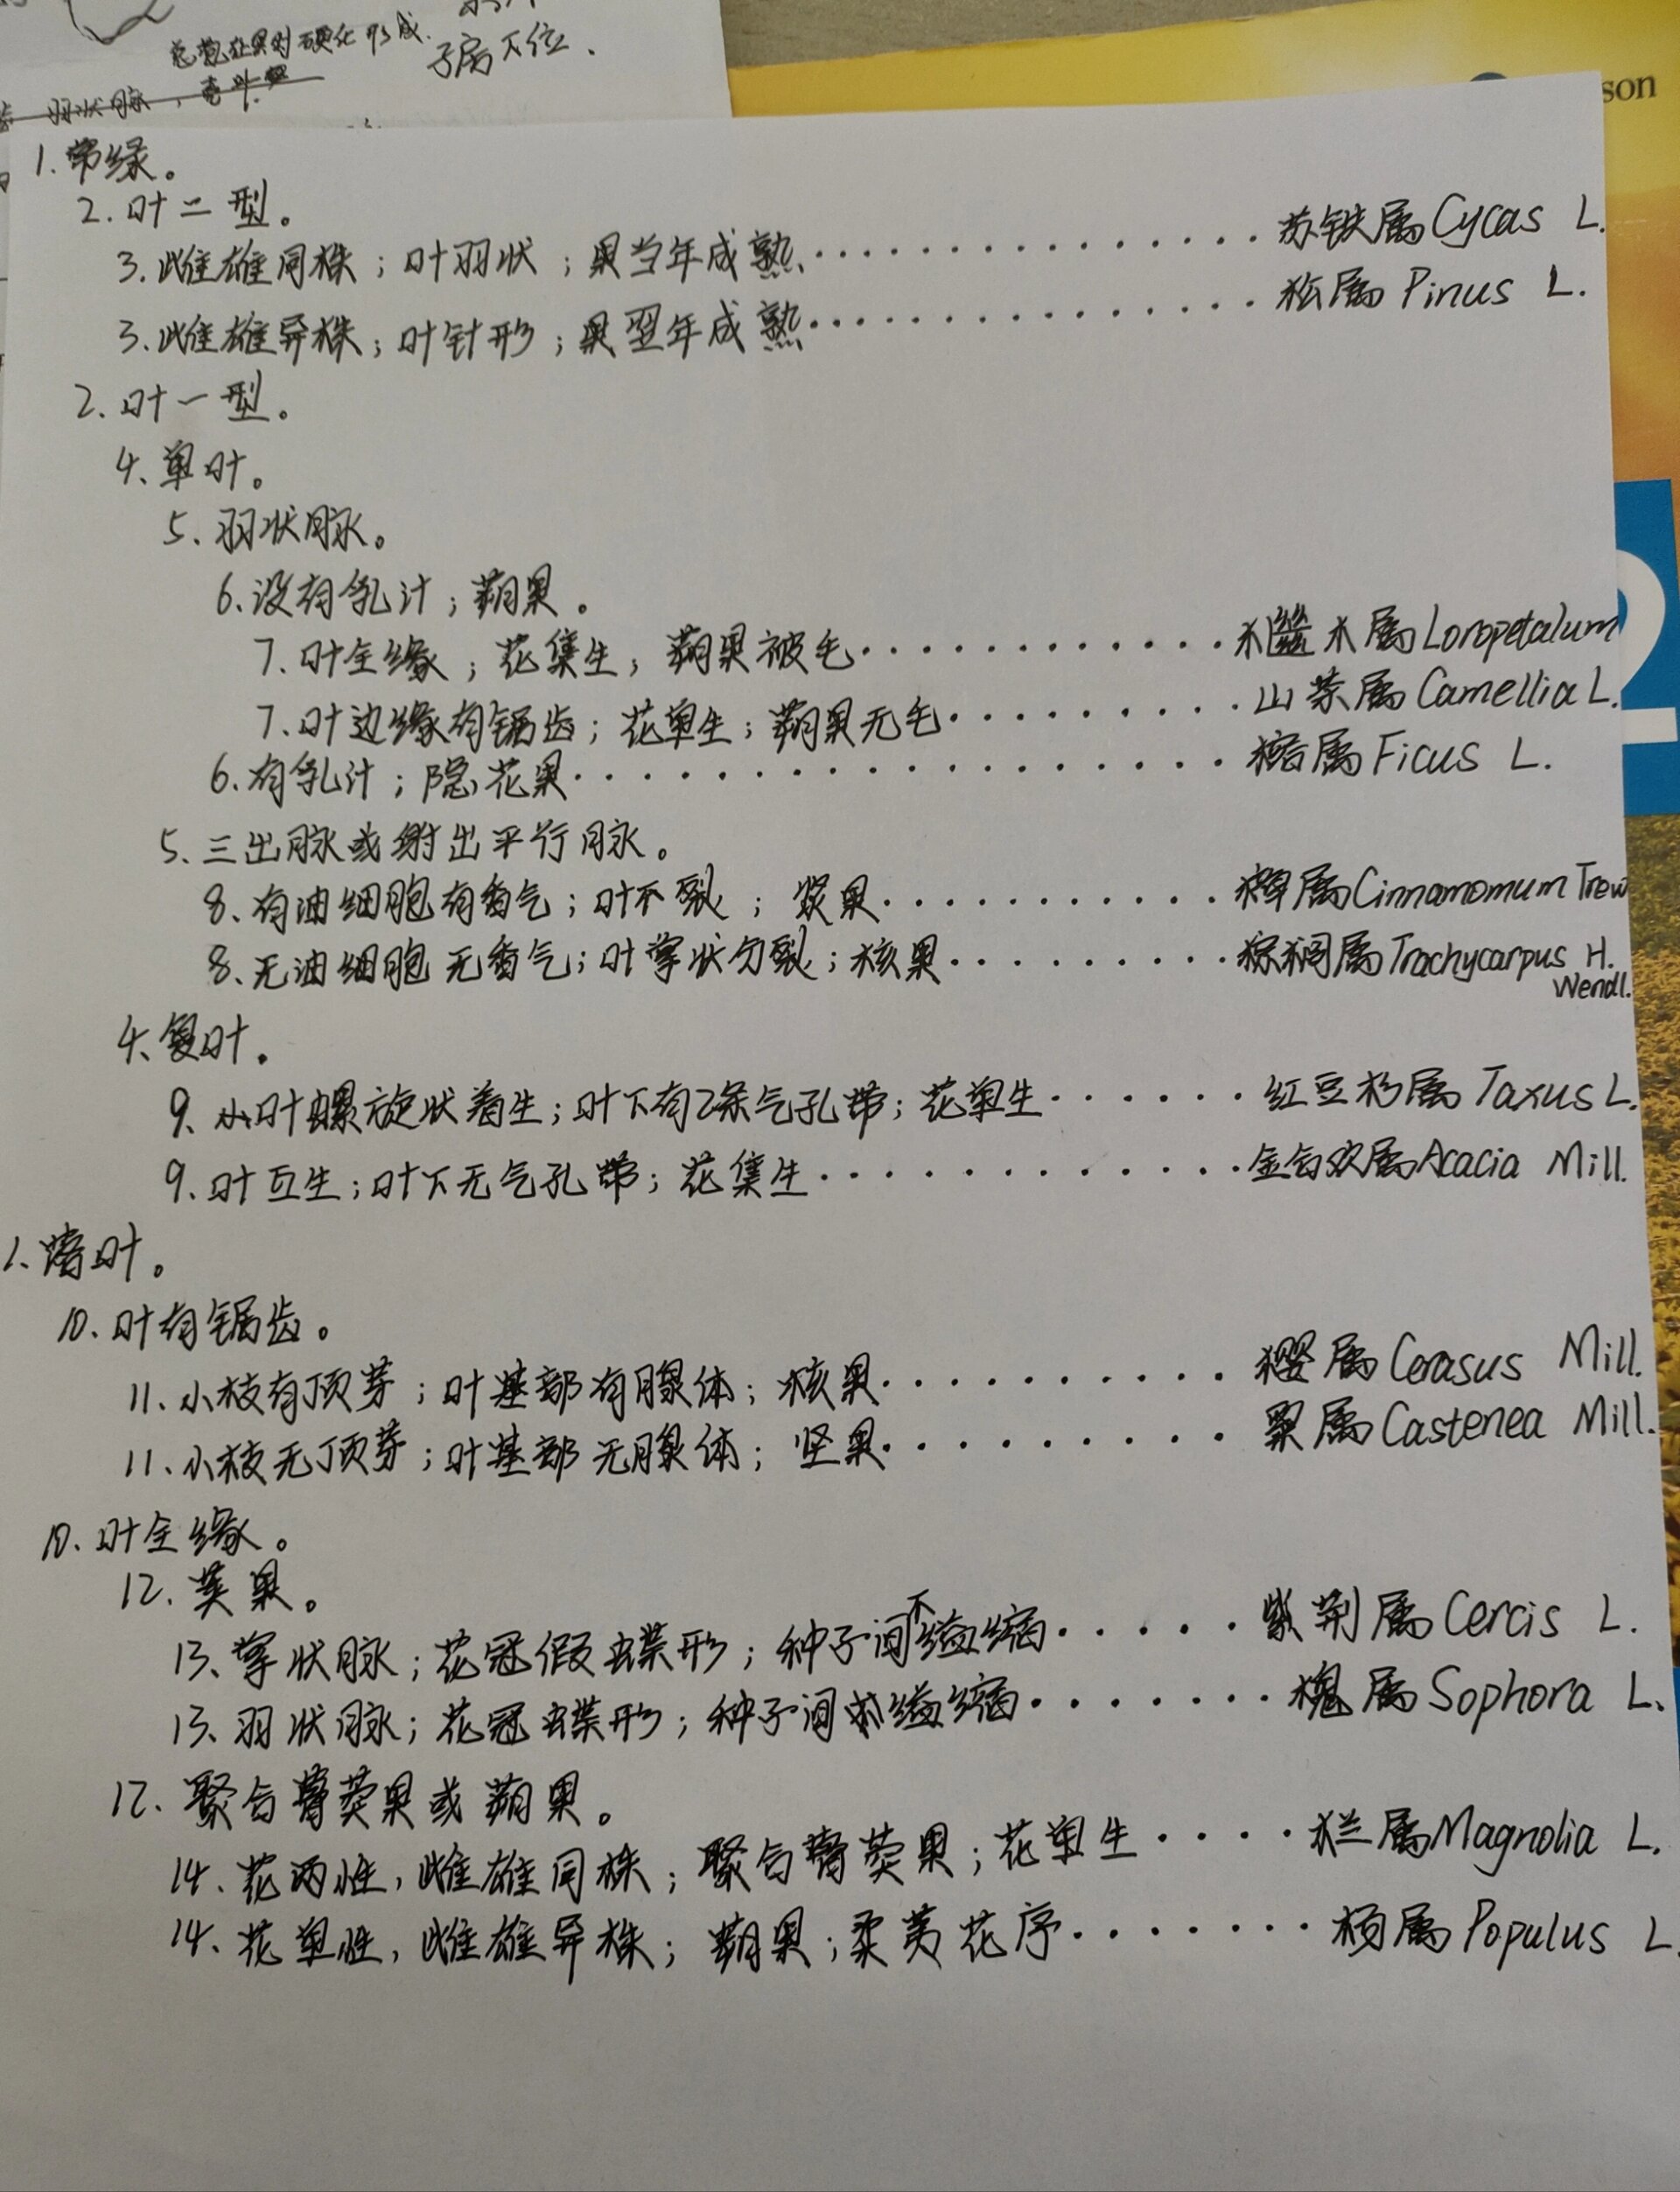 花苞在果时硬化形成.
子房下位.
羽状脉,
1.常绿。
2.叶二型。
3.雌雄同株;叶羽状;果当年成熟.............. 苏铁属Cycas L.
3.雌雄异株;叶针形;果翌年成熟.............. 松属 Pinus L.
2.叶一型。
4、单叶。
5、羽状脉。
6、没有乳汁;蒴果。
7、叶全缘;花集生;蒴果被毛............檵木属Loropetalum
7、叶边缘有锯齿;花单生;蒴果无毛.........山茶属Camellia L.
6、有乳汁;隐花果.................榕属 Ficus L.
5、三出脉或射出平行脉。
8、有油细胞有香气;叶不裂;浆果...........樟属Cinnamomum Trew
8、无油细胞无香气;叶掌状分裂;核果.........棕榈属Trachycarpus H.
Wendl.
4、复叶。
9、小叶螺旋状着生;叶下有2条气孔带;花单生......红豆杉属 Taxus L.
9、叶互生;叶下无气孔带;花集生............金合欢属Acacia Mill.
1、落叶。
10、叶有锯齿。
11、小枝有顶芽;叶基部有腺体;核果..........樱属 Cerasus Mill.
11、小枝无顶芽;叶基部无腺体;坚果..........栗属Castenea Mill.
10、叶全缘。
12、荚果。
13、掌状脉;花冠假蝶形;种子间不缢缩......紫荆属Cercis L.
13、羽状脉;花冠蝶形;种子间缢缩.......槐属Sophora L.
12、聚合蓇葖果或蒴果。
14、花两性,雌雄同株;聚合蓇葖果;花单生....木兰属Magnolia L.
14、花单性,雌雄异株;蒴果;柔荑花序.......杨属Populus L.
son
2